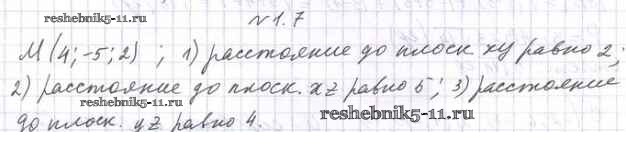 №1.7
reshebnik5-11.ru
M (4; -5; 2) ; 1) расстояние до плоск xy равно 2;
2) расстояние до плоск. xz равно 5; 3) расстояние
reshebnik5-11.ru
reshebnik5-11.ru
до плоск. yz равно 4.